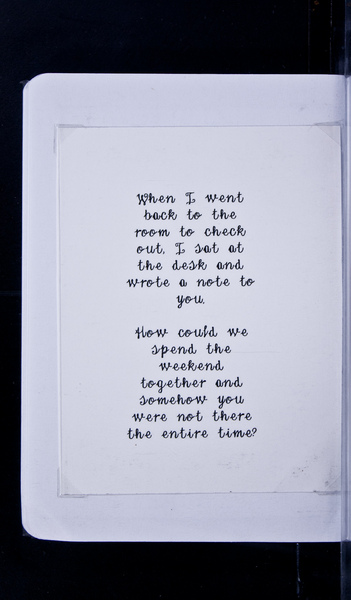 When I went
back to the
room to check
out, I sat at
the desk and
wrote a note to
you.
How could we
spend the
weekend
together and
somehow you
were not there
the entire time?